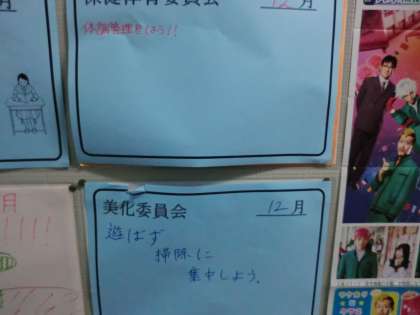 保健体育委員会 12月
体調管理をしよう!!
美化委員会 12月
遊ばず
掃除に
集中しよう。
月